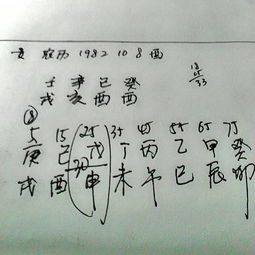 农历 1982 10 8 酉
壬 辛 己 癸
戌 亥 酉 酉
5 15 25 35 45 55 65 75
庚 己 戊 丁 丙 乙 甲 癸
戌 酉 申 未 午 巳 辰 卯